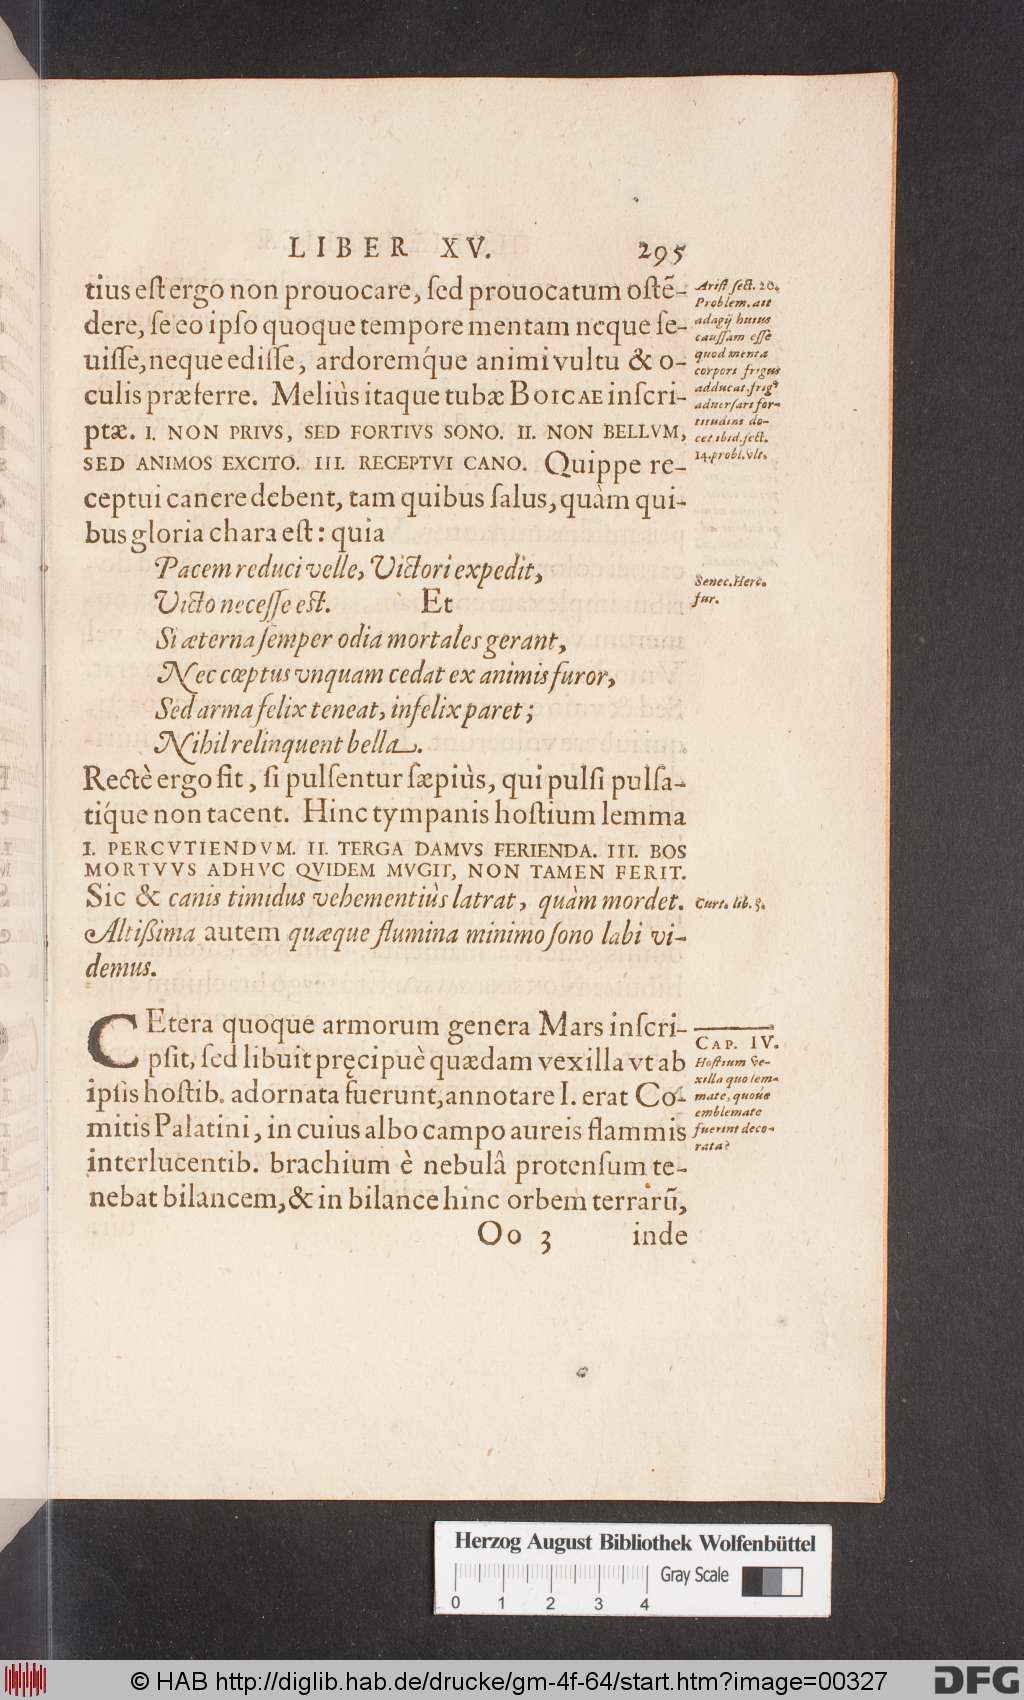 LIBER XV. 295
tius est ergo non prouocare, sed prouocatum ostẽ-
dere, se eo ipso quoque tempore mentam neque se-
uisse, neque edisse, ardoremq́ue animi vultu & o-
culis præferre. Meliùs itaque tubæ BOICAE inscri-
ptæ. I. NON PRIVS, SED FORTIVS SONO. II. NON BELLVM,
SED ANIMOS EXCITO. III. RECEPTVI CANO. Quippe re-
ceptui canere debent, tam quibus salus, quàm qui-
bus gloria chara est: quia
Pacem reduci velle, Victori expedit,
Victo necesse est. Et
Si æterna semper odia mortales gerant,
Nec cœptus vnquam cedat ex animis furor,
Sed arma felix teneat, infelix paret;
Nihil relinquent bella.
Rectè ergo fit, si pulsentur sæpiùs, qui pulsi pulsa-
tiq́ue non tacent. Hinc tympanis hostium lemma
I. PERCVTIENDVM. II. TERGA DAMVS FERIENDA. III. BOS
MORTVVS ADHVC QVIDEM MVGIT, NON TAMEN FERIT.
Sic & canis timidus vehementiùs latrat, quàm mordet.
Altißima autem quæque flumina minimo sono labi vi-
demus.
CEtera quoque armorum genera Mars inscri-
psit, sed libuit pręcipuè quædam vexilla vt ab
ipsis hostib. adornata fuerunt, annotare I. erat Co-
mitis Palatini, in cuius albo campo aureis flammis
interlucentib. brachium è nebulâ protensum te-
nebat bilancem, & in bilance hinc orbem terrarũ,
Oo 3 inde
Arist sect. 20.
Problem. ait
adagij huius
caussam esse
quod menta
corpori frigus
adducat. frigꝰ
aduersari for-
titudini do-
cet ibid. sect.
14. probl. vlt.
Senec. Herc.
fur.
Curt. lib. 5.
CAP. IV.
Hostium ve-
xilla quo lem-
mate, quoúe
emblemate
fuerint deco-
rata?
Herzog August Bibliothek Wolfenbüttel
Gray Scale
0 1 2 3 4
© HAB http://diglib.hab.de/drucke/gm-4f-64/start.htm?image=00327
DFG